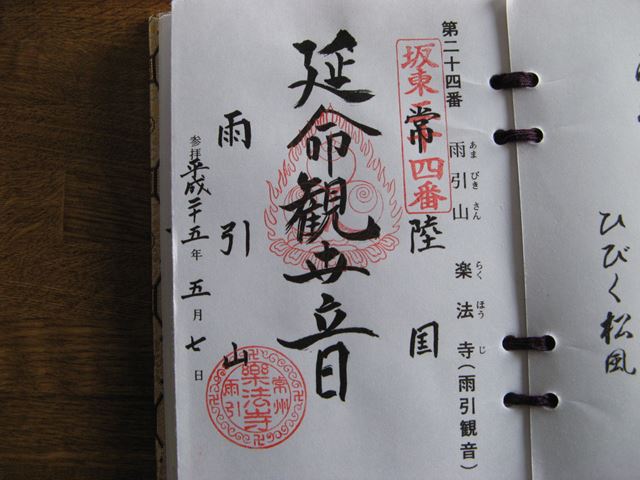 ひびく松風
第二十四番 雨引山 楽法寺(雨引観音)
あまびきさん らくほうじ
坂東廿四番
常陸国
延命観世音
雨引山
参拝 平成二十五年五月七日
常州
樂法寺
雨引